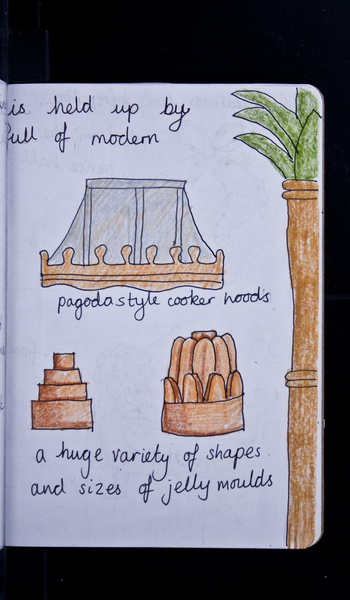 is held up by
full of modern
pagoda style cooker hoods
a huge variety of shapes
and sizes of jelly moulds